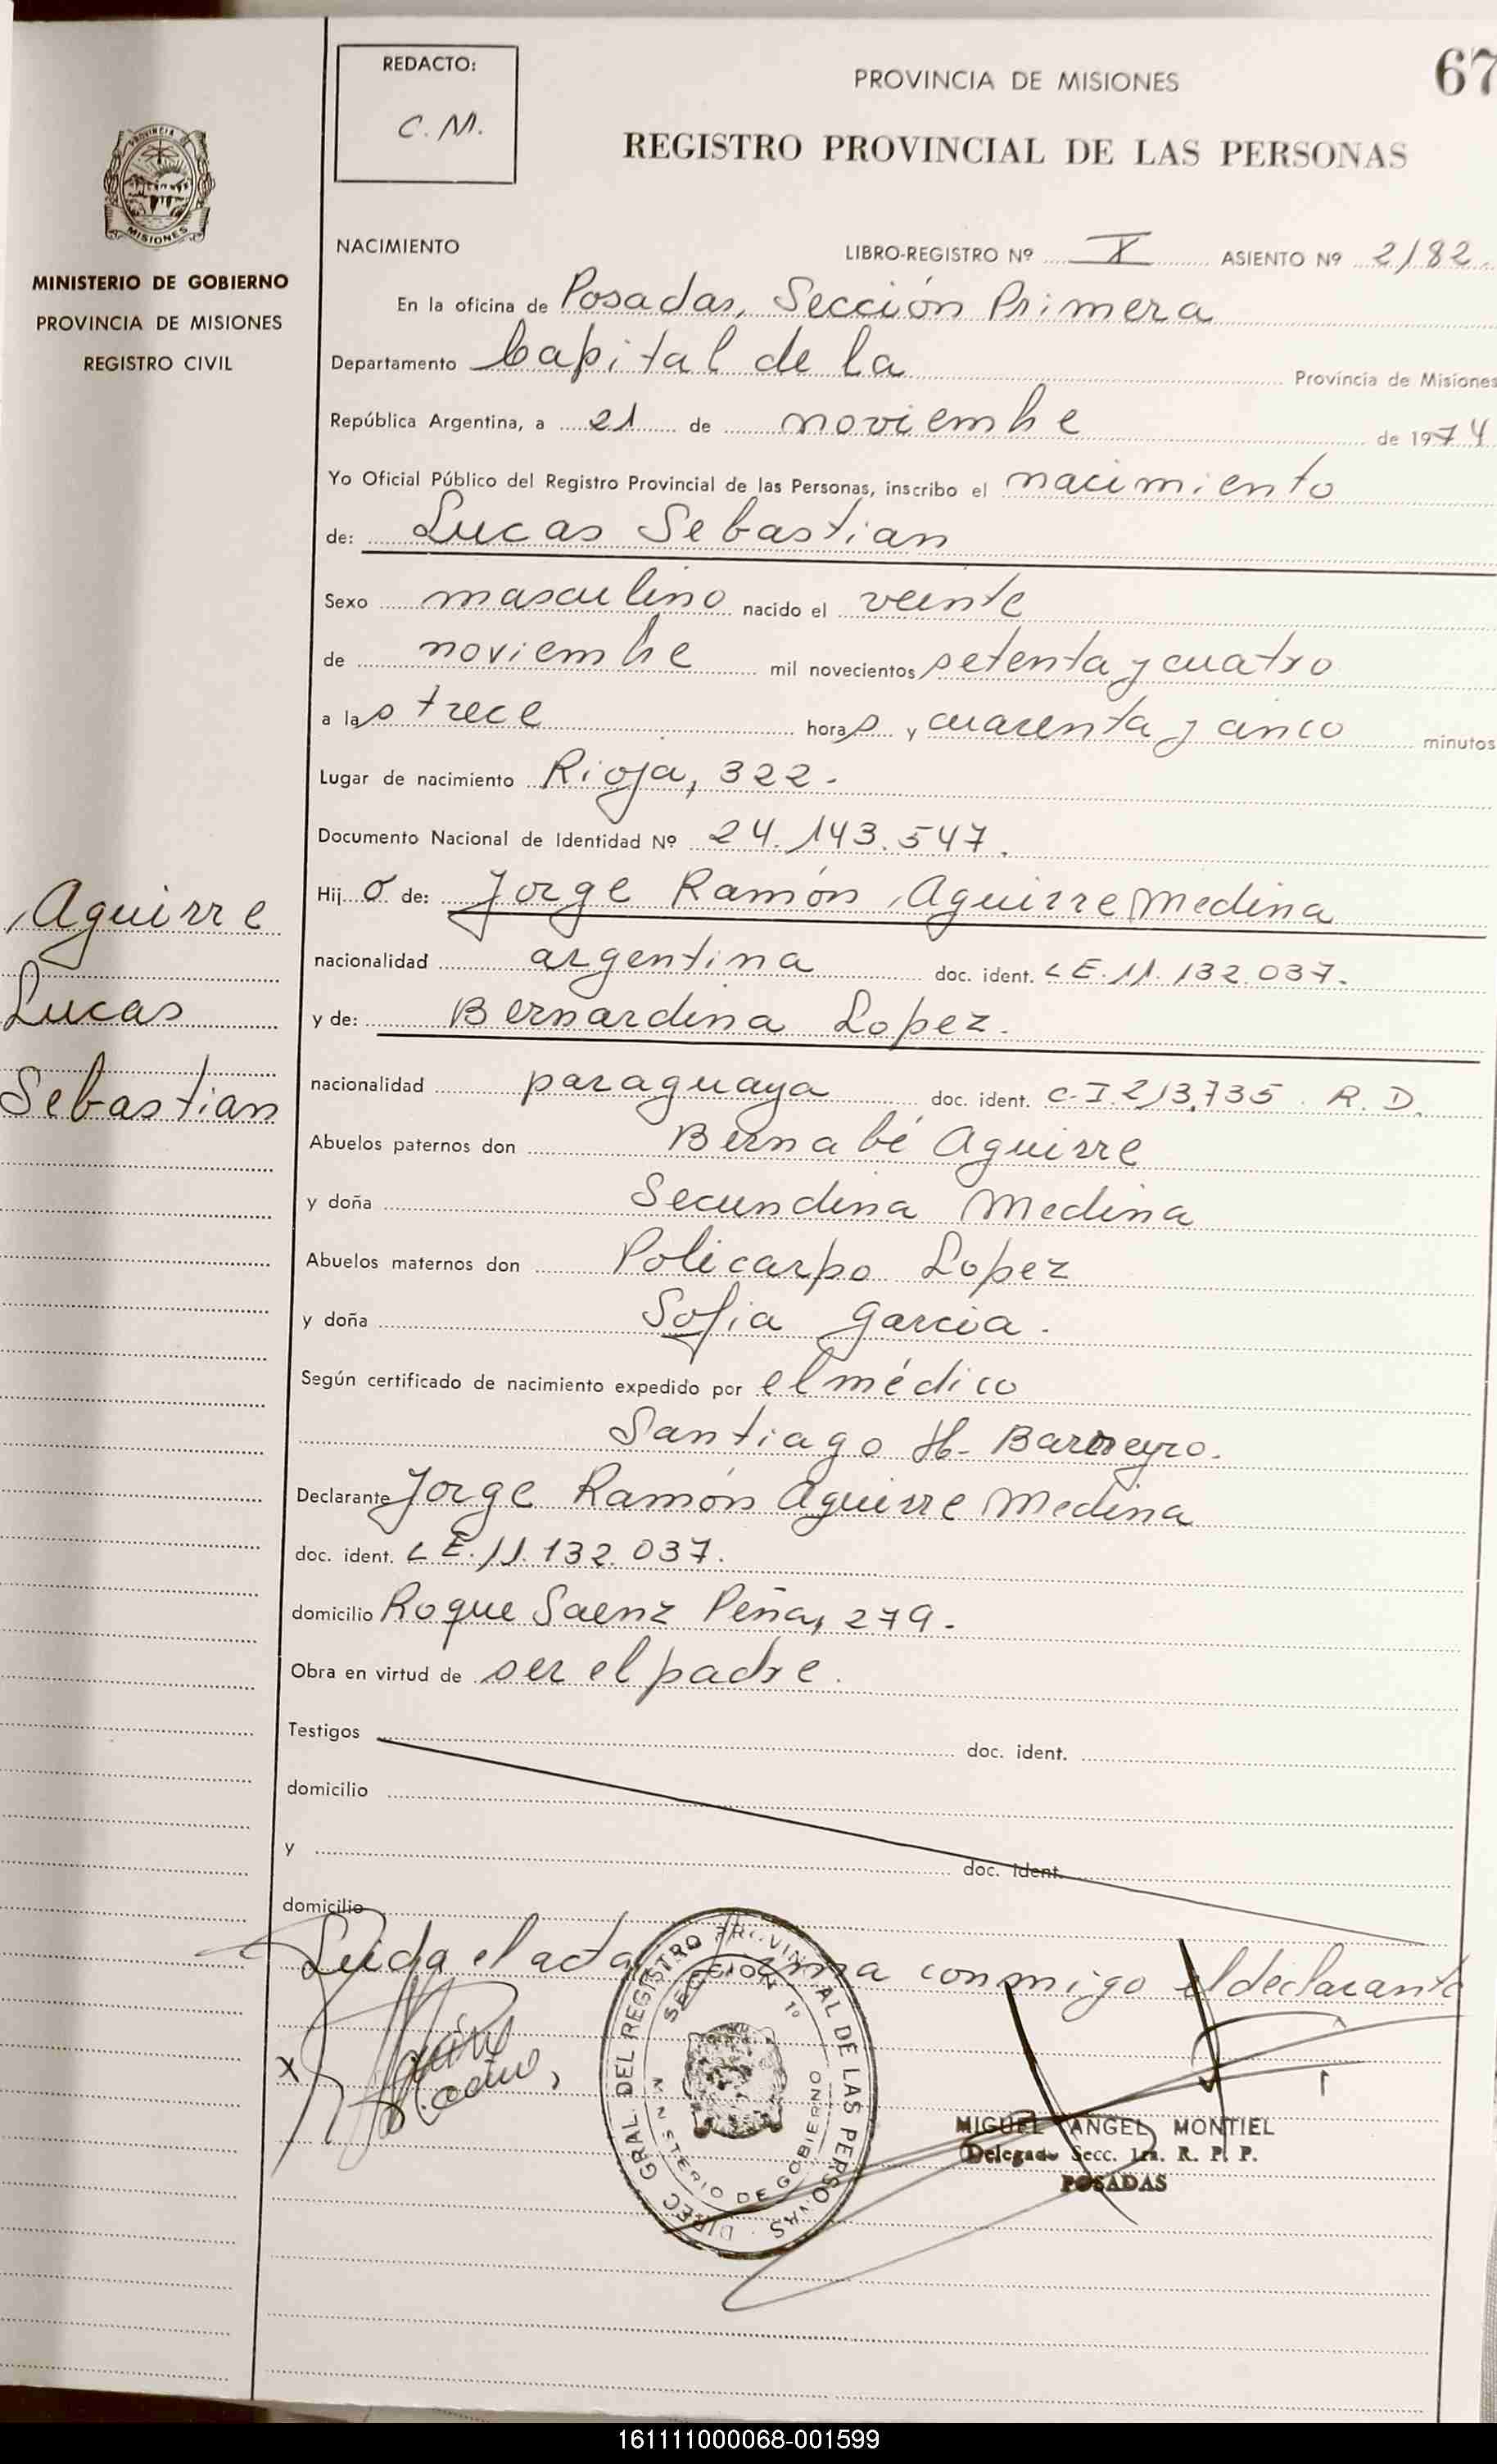 REDACTO:
C. M.
PROVINCIA DE MISIONES
67
REGISTRO PROVINCIAL DE LAS PERSONAS
PROVINCIA
MISIONES
MINISTERIO DE GOBIERNO
PROVINCIA DE MISIONES
REGISTRO CIVIL
NACIMIENTO LIBRO-REGISTRO Nº X ASIENTO Nº 2182
En la oficina de Posadas, Sección Primera
Departamento Capital de la Provincia de Misiones
República Argentina, a 21 de noviembre de 1974
Yo Oficial Público del Registro Provincial de las Personas, inscribo el nacimiento
de: Lucas Sebastian
Sexo masculino nacido el veinte
de noviembre mil novecientos setenta y cuatro
a las trece horas y cuarenta y cinco minutos
Lugar de nacimiento Rioja, 322.
Documento Nacional de Identidad Nº 24.143.547.
Hijo de: Jorge Ramón Aguirre Medina
nacionalidad argentina doc. ident. L E. 11. 132.037.
y de: Bernardina Lopez.
nacionalidad paraguaya doc. ident. C. I. 213.735. R. D.
Aguirre
Lucas
Sebastian
Abuelos paternos don Bernabé Aguirre
y doña Secundina Medina
Abuelos maternos don Policarpo Lopez
y doña Sofia Garcia.
Según certificado de nacimiento expedido por el médico
Santiago H. Barreyro.
Declarante Jorge Ramón Aguirre Medina
doc. ident. L E. 11. 132. 037.
domicilio Roque Saenz Peña, 279.
Obra en virtud de ser el padre.
Testigos doc. ident.
domicilio
y doc. ident.
domicilio
Leida el acta firma conmigo el declarante
DIREC. GRAL. DEL REGISTRO PROVINCIAL DE LAS PERSONAS
SECCION 1º
MINISTERIO DE GOBIERNO
MIGUEL ANGEL MONTIEL
Delegado Secc. 1ra. R. P. P.
POSADAS
161111000068-001599